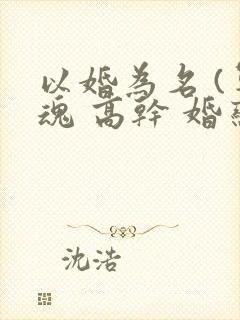 以婚為名 (
魂 高幹 婚
沈浩